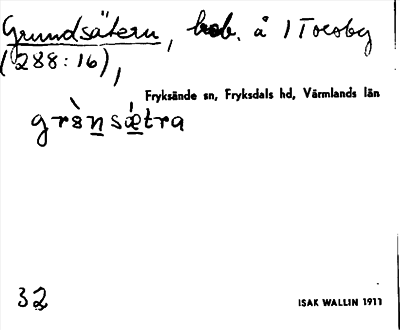 Grundsätern, beb. å 1 Torsby
(288:16),
Fryksände sn, Fryksdals hd, Värmlands län
grànsǽtra
32
ISAK WALLIN 1911